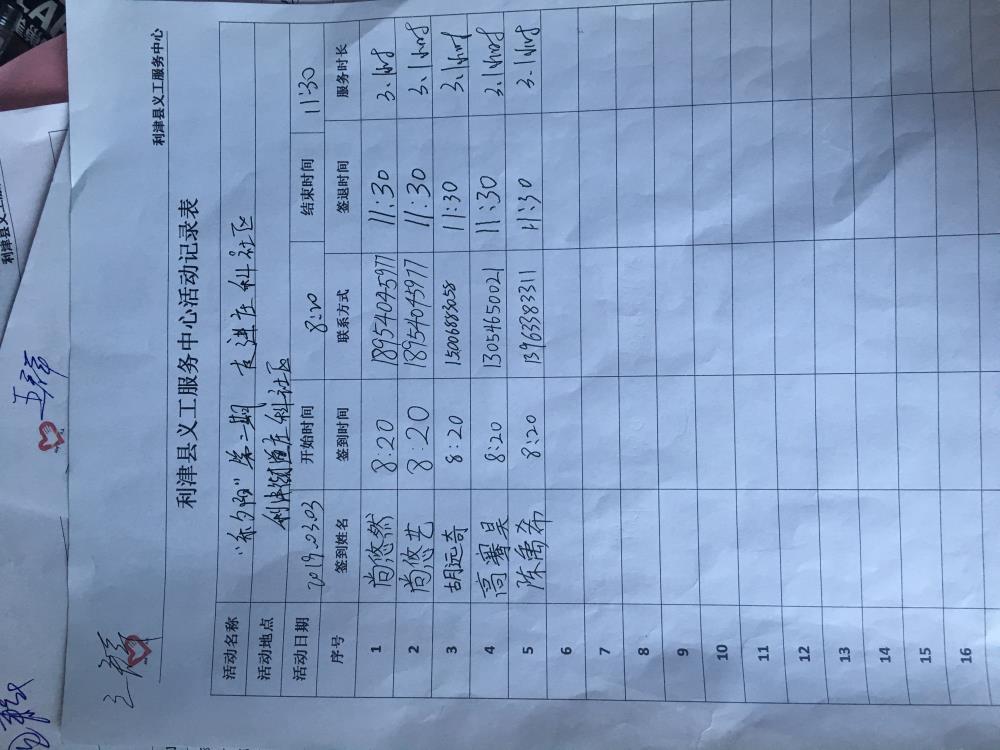 利津县义工服务中心
利津县义工服务中心活动记录表
活动名称 第二期 走进庄科社区
活动地点 利津街道庄科社区
活动日期 2019.03.03 开始时间 8:20 结束时间 11:30
序号 签到姓名 签到时间 联系方式 签退时间 服务时长
1 尚悠然 8:20 18954045977 11:30 3.1小时
2 尚悠艺 8:20 18954045977 11:30 3.1小时
3 胡远奇 8:20 15006883058 11:30 3.1小时
4 高署昊 8:20 13054650021 11:30 3.1小时
5 陈禹希 8:20 13963383311 11:30 3.1小时
6
7
8
9
10
11
12
13
14
15
16